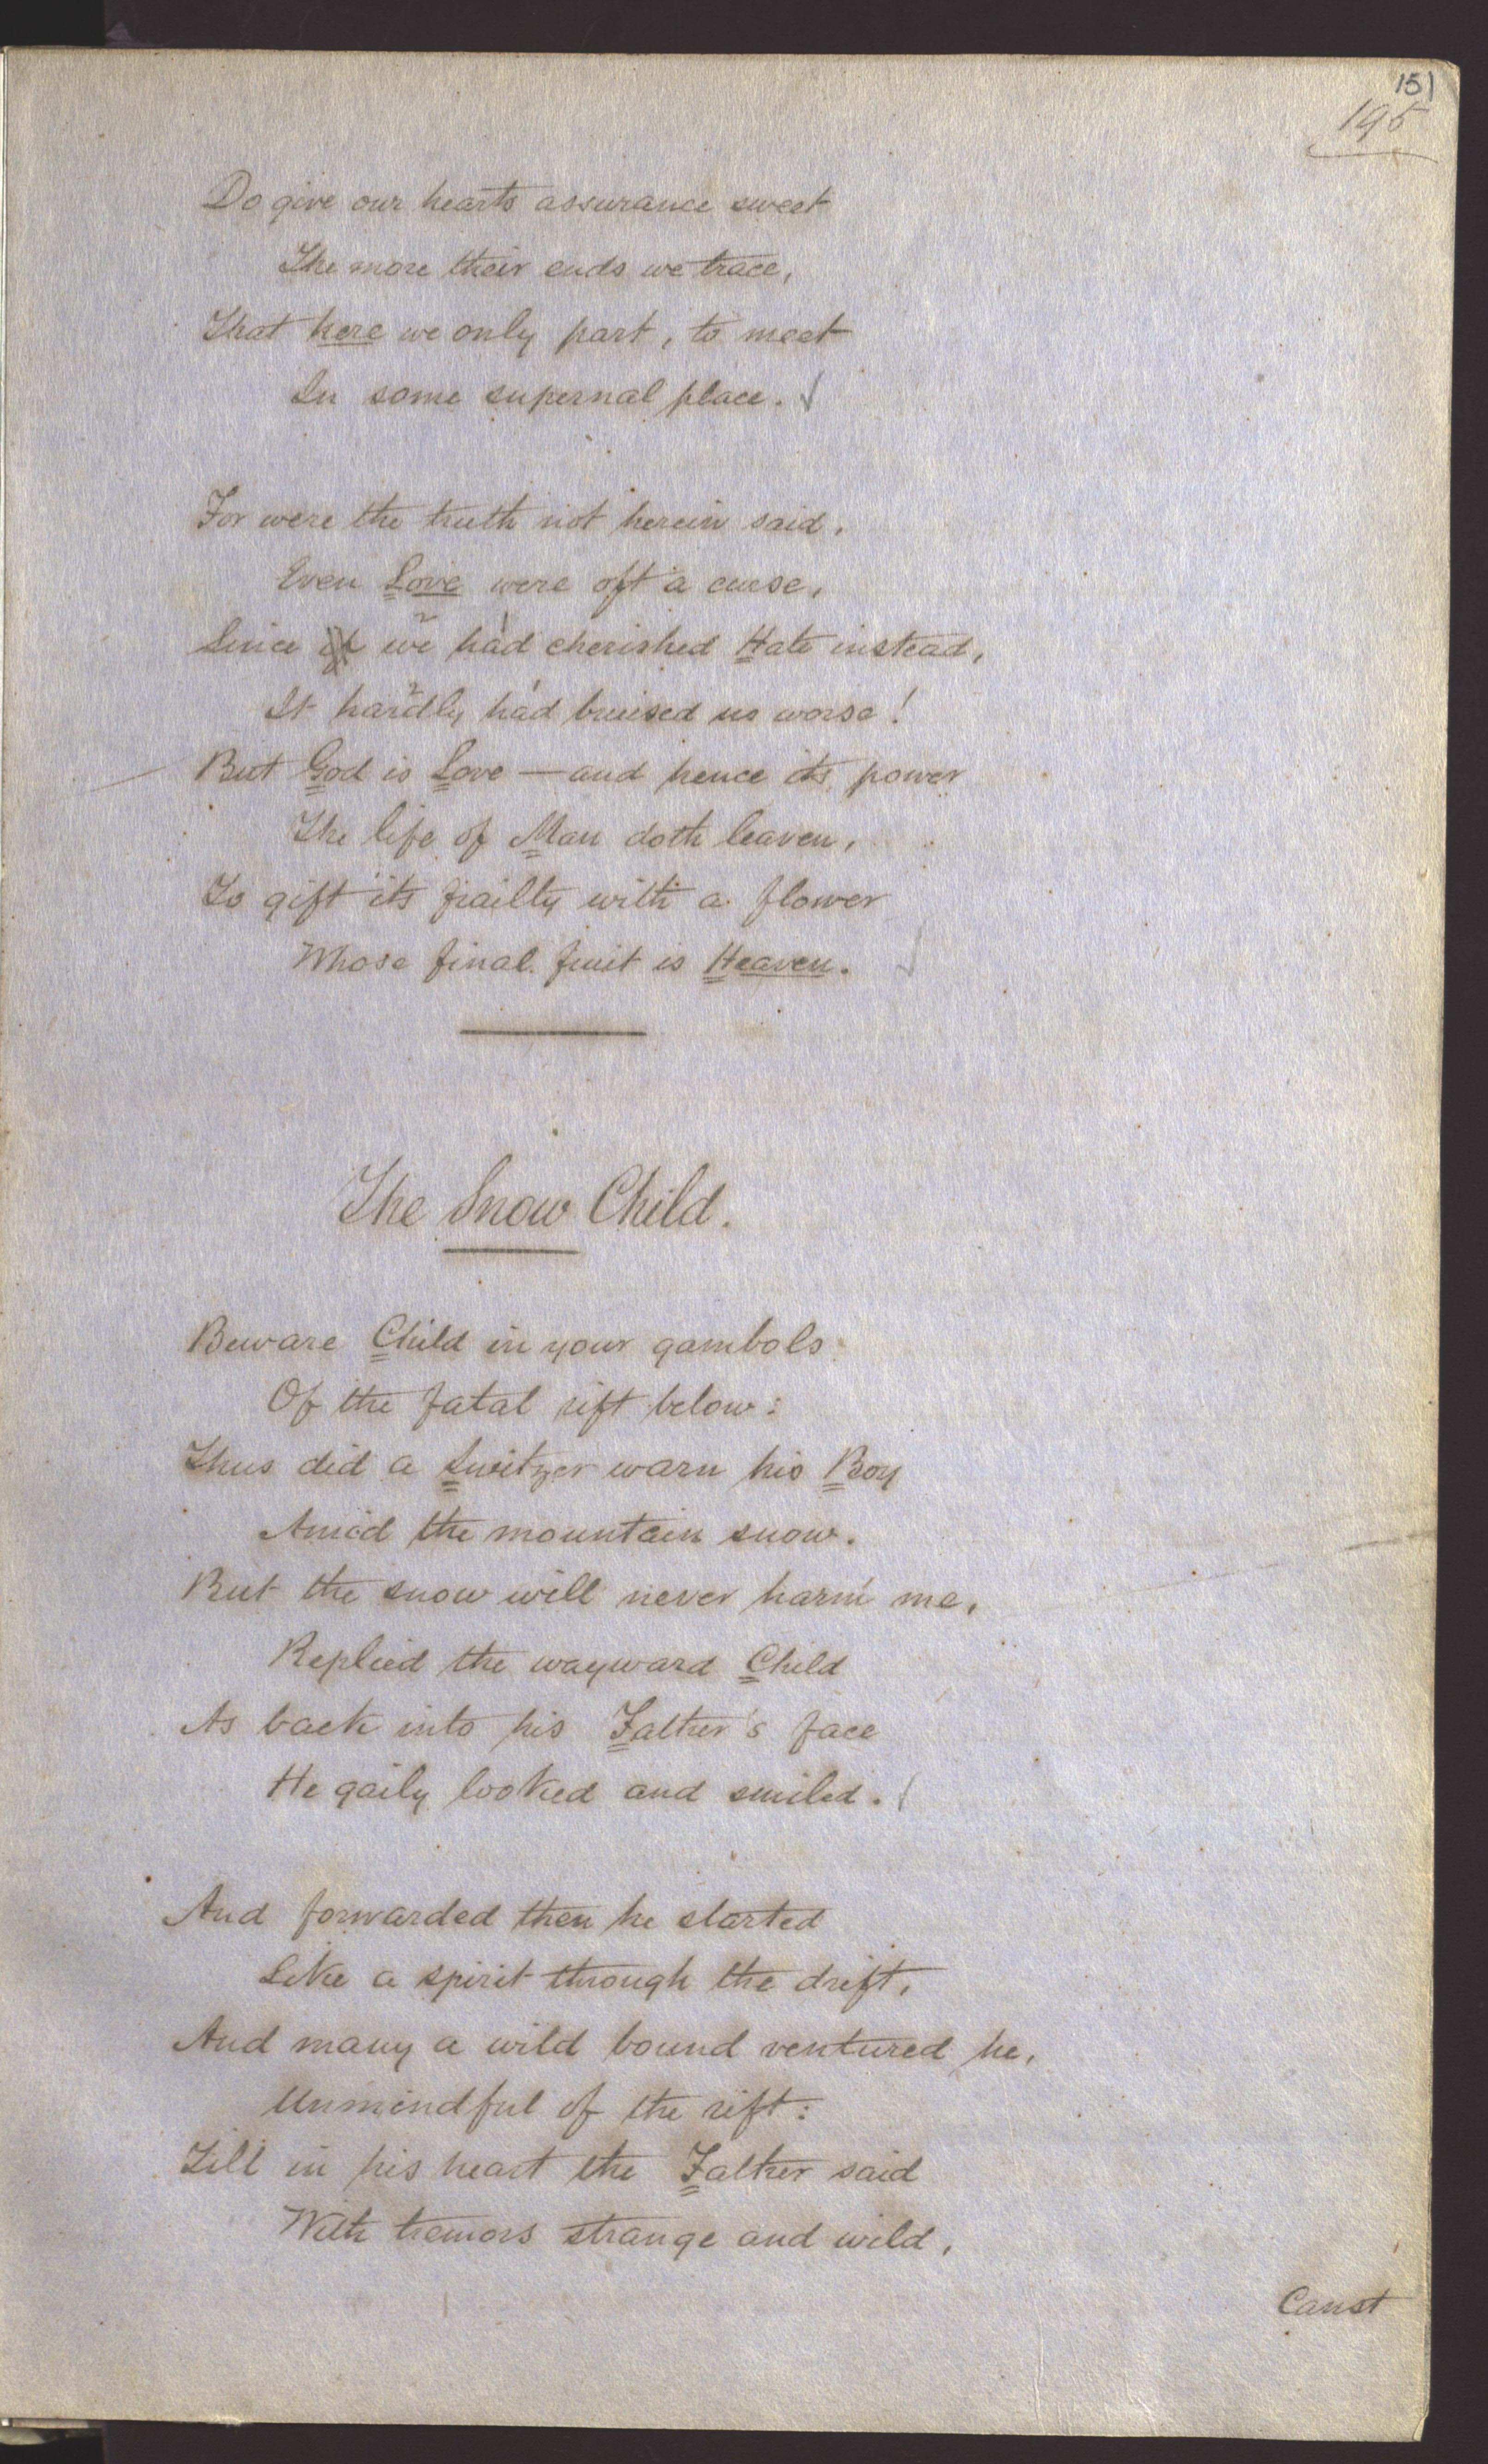 151
195
Do give our hearts assurance sweet
The more their ends we trace,
That here we only part, to meet
In some supernal place.
For were the truth not herein said,
Even Love were oft a curse,
Since we had cherished Hate instead,
It hardly had bruised us worse!
But God is Love — and hence its power
The life of Man doth leaven,
To gift its frailty with a flower
Whose final fruit is Heaven.
The Snow Child.
Beware Child in your gambols
Of the fatal rift below:
Thus did a Switzer warn his Boy
Amid the mountain snow.
But the snow will never harm me,
Replied the wayward Child
As back into his Father's face
He gaily looked and smiled.
And forwarded then he started
Like a spirit through the drift,
And many a wild bound ventured he,
Unmindful of the rift:
Till in his heart the Father said
With tremors strange and wild,
Canst